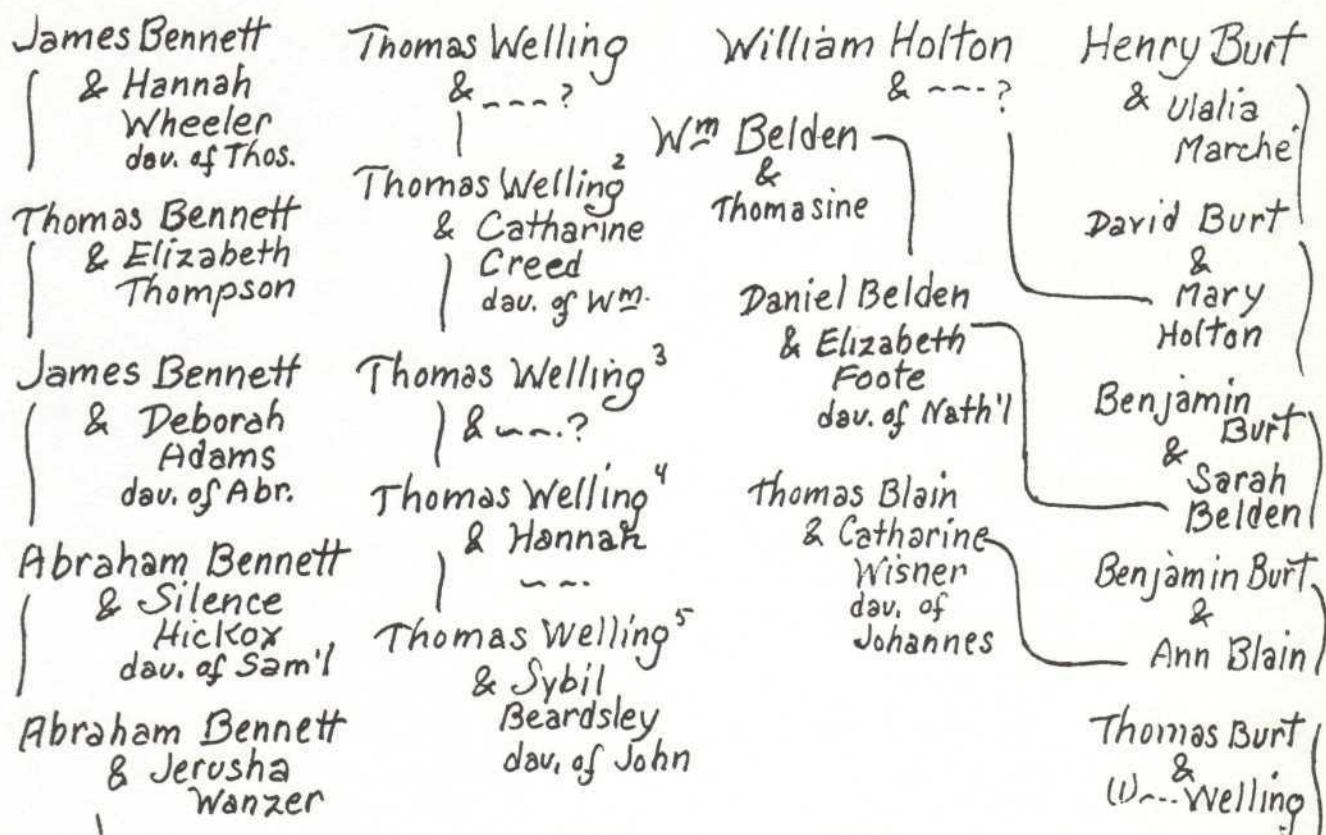 James Bennett
& Hannah
Wheeler
dau. of Thos.
Thomas Bennett
& Elizabeth
Thompson
James Bennett
& Deborah
Adams
dau. of Abr.
Abraham Bennett
& Silence
Hickox
dau. of Sam'l
Abraham Bennett
& Jerusha
Wanzer
Thomas Welling
& ---?
Thomas Welling²
& Catharine
Creed
dau. of Wm.
Thomas Welling³
& ---.?
Thomas Welling⁴
& Hannah
---.
Thomas Welling⁵
& Sybil
Beardsley
dau. of John
William Holton
& ---.?
Wm Belden
&
Thomasine
Daniel Belden
& Elizabeth
Foote
dau. of Nath'l
Thomas Blain
& Catharine
Wisner
dau. of
Johannes
Henry Burt
& Ulalia
Marché
David Burt
&
Mary
Holton
Benjamin
Burt
&
Sarah
Belden
Benjamin Burt
&
Ann Blain
Thomas Burt
&
(1)--- Welling